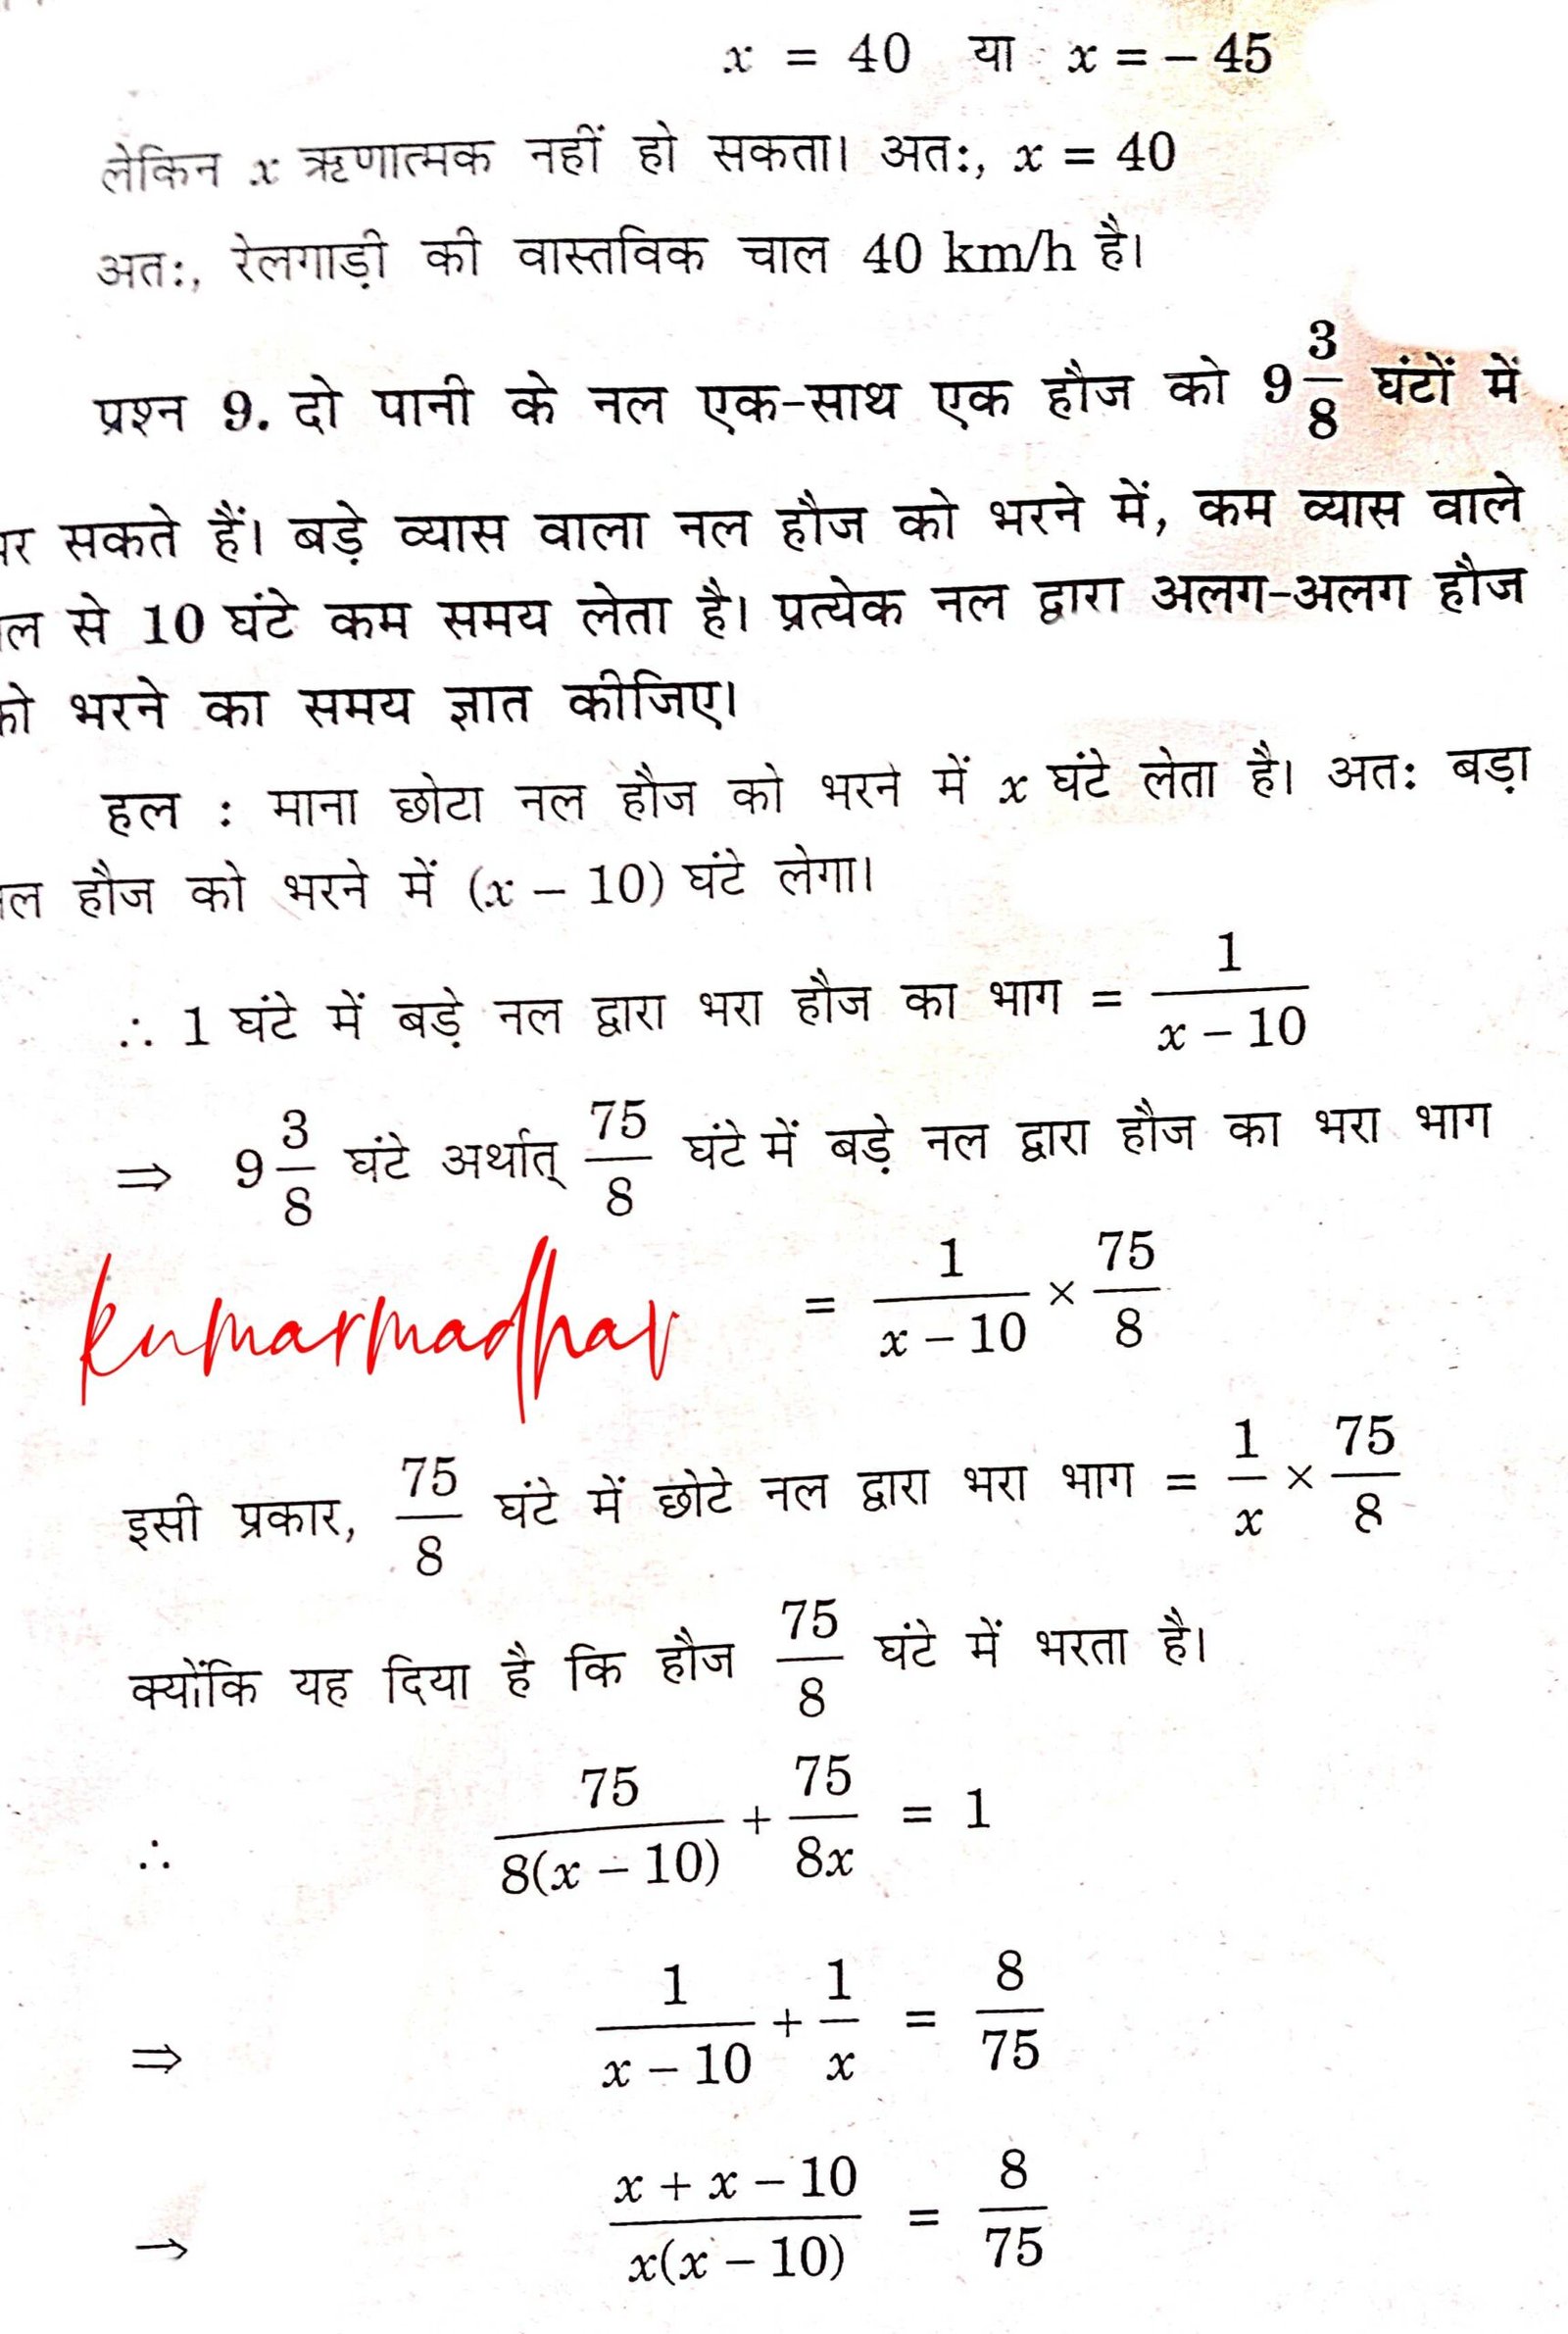 x = 40 या x = – 45
लेकिन x ऋणात्मक नहीं हो सकता। अतः, x = 40
अतः, रेलगाड़ी की वास्तविक चाल 40 km/h है।
प्रश्न 9. दो पानी के नल एक-साथ एक हौज को 9 3/8 घंटों में
सकते हैं। बड़े व्यास वाला नल हौज को भरने में, कम व्यास वाले
से 10 घंटे कम समय लेता है। प्रत्येक नल द्वारा अलग-अलग हौज
को भरने का समय ज्ञात कीजिए।
हल : माना छोटा नल हौज को भरने में x घंटे लेता है। अतः बड़ा
हौज को भरने में (x – 10) घंटे लेगा।
∴ 1 घंटे में बड़े नल द्वारा भरा हौज का भाग = 1/(x – 10)
⇒ 9 3/8 घंटे अर्थात् 75/8 घंटे में बड़े नल द्वारा हौज का भरा भाग
= 1/(x – 10) × 75/8
kumarmadhav
इसी प्रकार, 75/8 घंटे में छोटे नल द्वारा भरा भाग = 1/x × 75/8
क्योंकि यह दिया है कि हौज 75/8 घंटे में भरता है।
∴ 75/8(x – 10) + 75/8x = 1
⇒ 1/(x – 10) + 1/x = 8/75
→ (x + x – 10)/x(x – 10) = 8/75